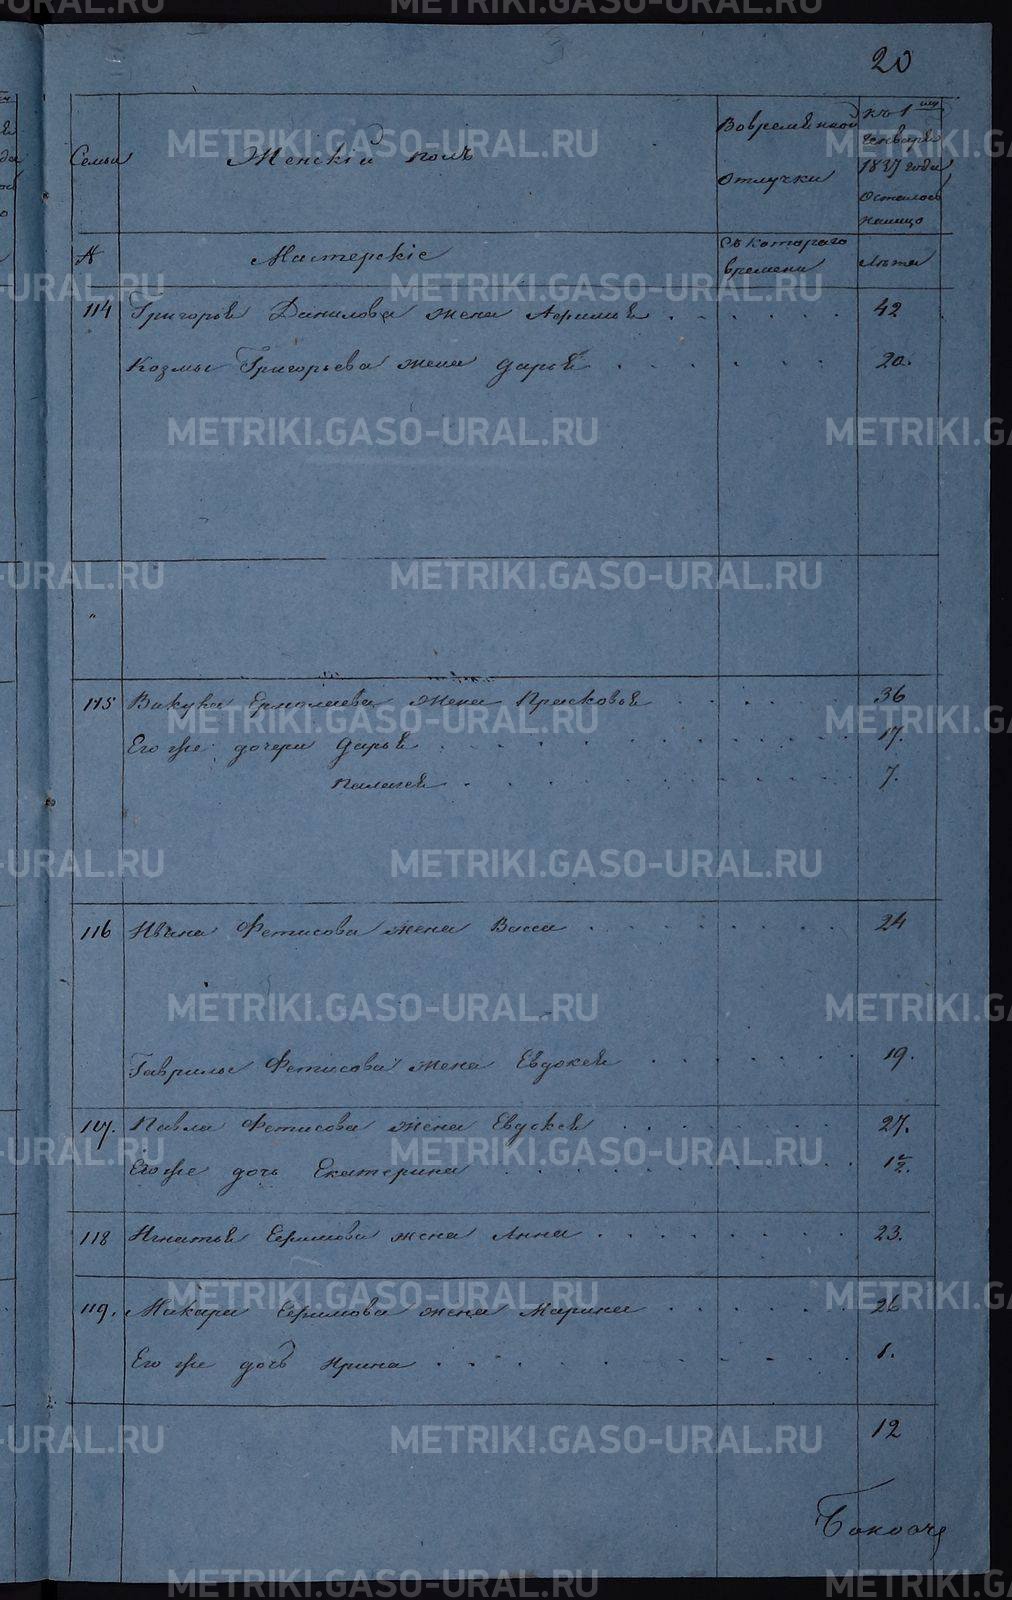 20
Семьи
Женскій полъ
Вовременной
отлучки
къ 1 му
генваря
1837 года
осталось
налицо
№
Мастерскіе
Съ котораго
времени
Лѣта
114 Григорья Данилова жена Афимья 42
Козмы Григорьева жена дарья 20.
115 Викула Ермолаева жена Прасковья 36
Его же дочери дарья 17.
палагея 7.
116 Ивана Фетисова жена Васса 24
Гаврилы Фетисова жена Евдокея 19.
117. Павла Фетисова жена Евдокея 27.
Его же дочь Екатерина 1/2.
118 Игнатья Ефимова жена Анна 23.
119. Макара Ефимова жена Марина 26
Его же дочь Ирина 1.
12
METRIKI.GASO-URAL.RU